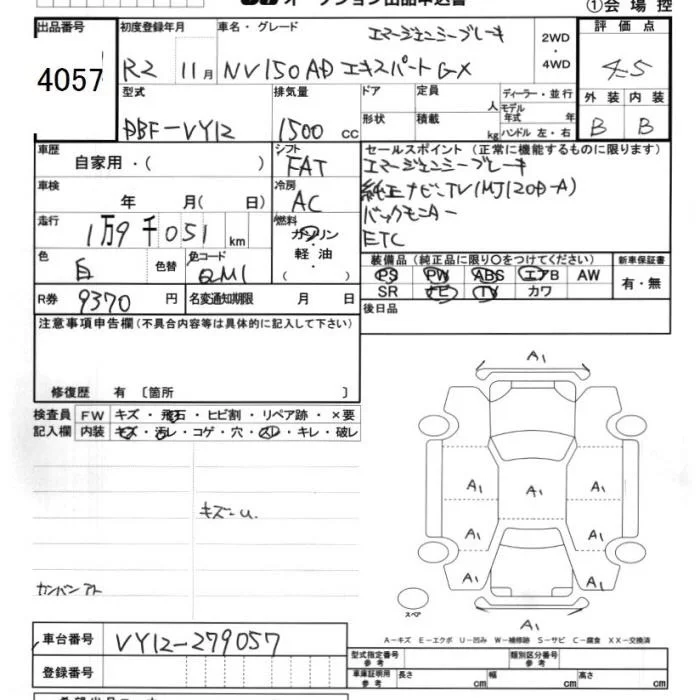 オークション出品申込書
①会場控
出品番号
4057
初度登録年月
R2 11月
車名・グレード
エマージェンシーブレーキ
NV150AD エキスパートGX
2WD
・
4WD
評価点
4.5
外装 内装
B B
型式
DBF-VY12
排気量
1500 cc
ドア 定員 人
形状 積載 kg
ディーラー・並行
モデル年式 年
ハンドル 左・右
車歴
自家用・( )
シフト
FAT
車検
年 月( 日)
冷房
AC
走行
1万9千051 km
燃料
ガソリン・
軽油・
( )
色
白
色替
色コード
QM1
R券 9370 円
名変通知期限 月 日
セールスポイント(正常に機能するものに限ります)
エマージェンシーブレーキ
純正ナビ、TV(MJ120D-A)
バックモニター
ETC
装備品(純正品に限り○をつけてください)
PS PW ABS エアB AW
SR ナビ TV カワ
新車保証書
有・無
後日品
注意事項申告欄(不具合内容等は具体的に記入して下さい)
修復歴 有 〔箇所 〕
検査員
記入欄
FW キズ・飛石・ヒビ割・リペア跡・×要
内装 キズ・汚レ・コゲ・穴・スレ・キレ・破レ
キズ-U.
カンバンアト
A1
A1
A1
A1
A1
A1
A1
A1
A1
スペア
A1
A-キズ E-エクボ U-凹み W-補修跡 S-サビ C-腐食 XX-交換済
車台番号
VY12-279057
登録番号
型式指定番号
参考
類別区分番号
参考
車庫証明用
参考
長さ cm 幅 cm 高さ cm